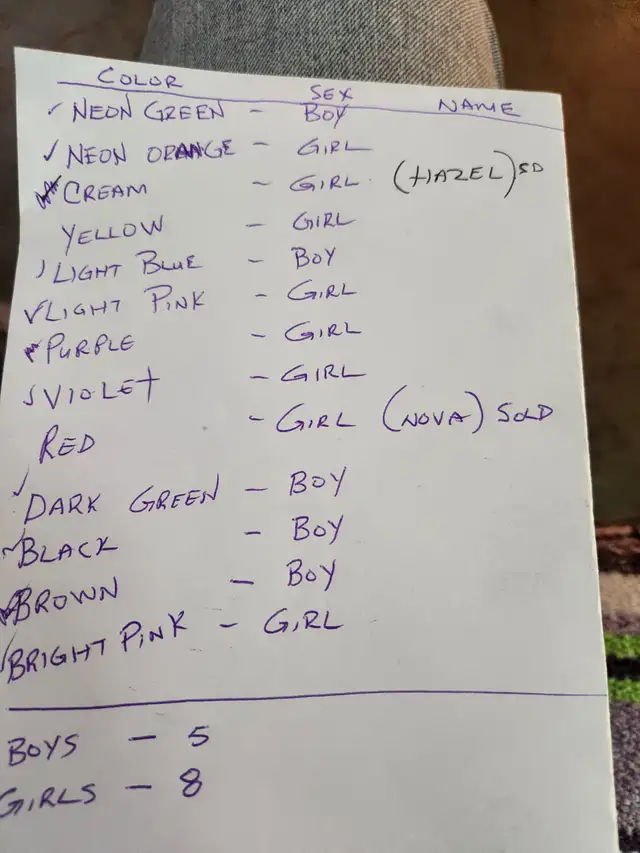 COLOR SEX NAME
✓ NEON GREEN - BOY
✓ NEON ORANGE - GIRL
CREAM - GIRL (HAZEL) SD
YELLOW - GIRL
✓ LIGHT BLUE - BOY
✓ LIGHT PINK - GIRL
✓ PURPLE - GIRL
✓ VIOLET - GIRL
RED - GIRL (NOVA) SOLD
✓ DARK GREEN - BOY
✓ BLACK - BOY
BROWN - BOY
✓ BRIGHT PINK - GIRL
BOYS - 5
GIRLS - 8